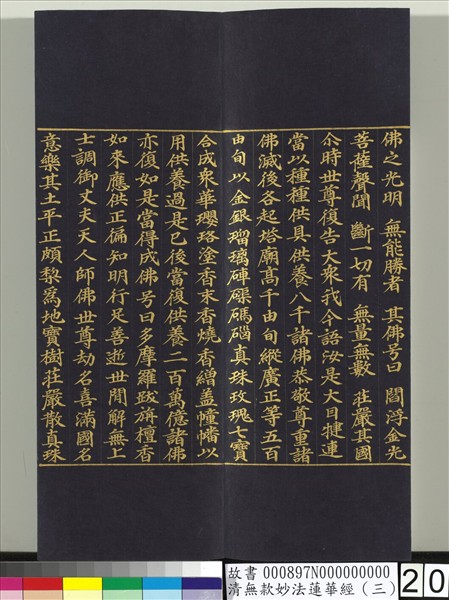 佛之光明　無能勝者　其佛号曰　閻浮金光
菩薩聲聞　斷一切有　無量無數　莊嚴其國
尒時世尊復告大衆我今語汝是大目揵連
當以種種供具供養八千諸佛恭敬尊重諸
佛滅後各起塔廟高千由旬縱廣正等五百
由旬以金銀瑠璃硨磲碼碯真珠玫瑰七寶
合成衆華瓔珞塗香末香燒香繒盖幢幡以
用供養過是已後當復供養二百萬億諸佛
亦復如是當得成佛号曰多摩羅跋旃檀香
如來應供正徧知明行足善逝世間解無上
士調御丈夫天人師佛世尊劫名喜滿國名
意樂其土平正頗黎爲地寶樹莊嚴散真珠
故書 000897N000000000
清無款妙法蓮華經（三）
20